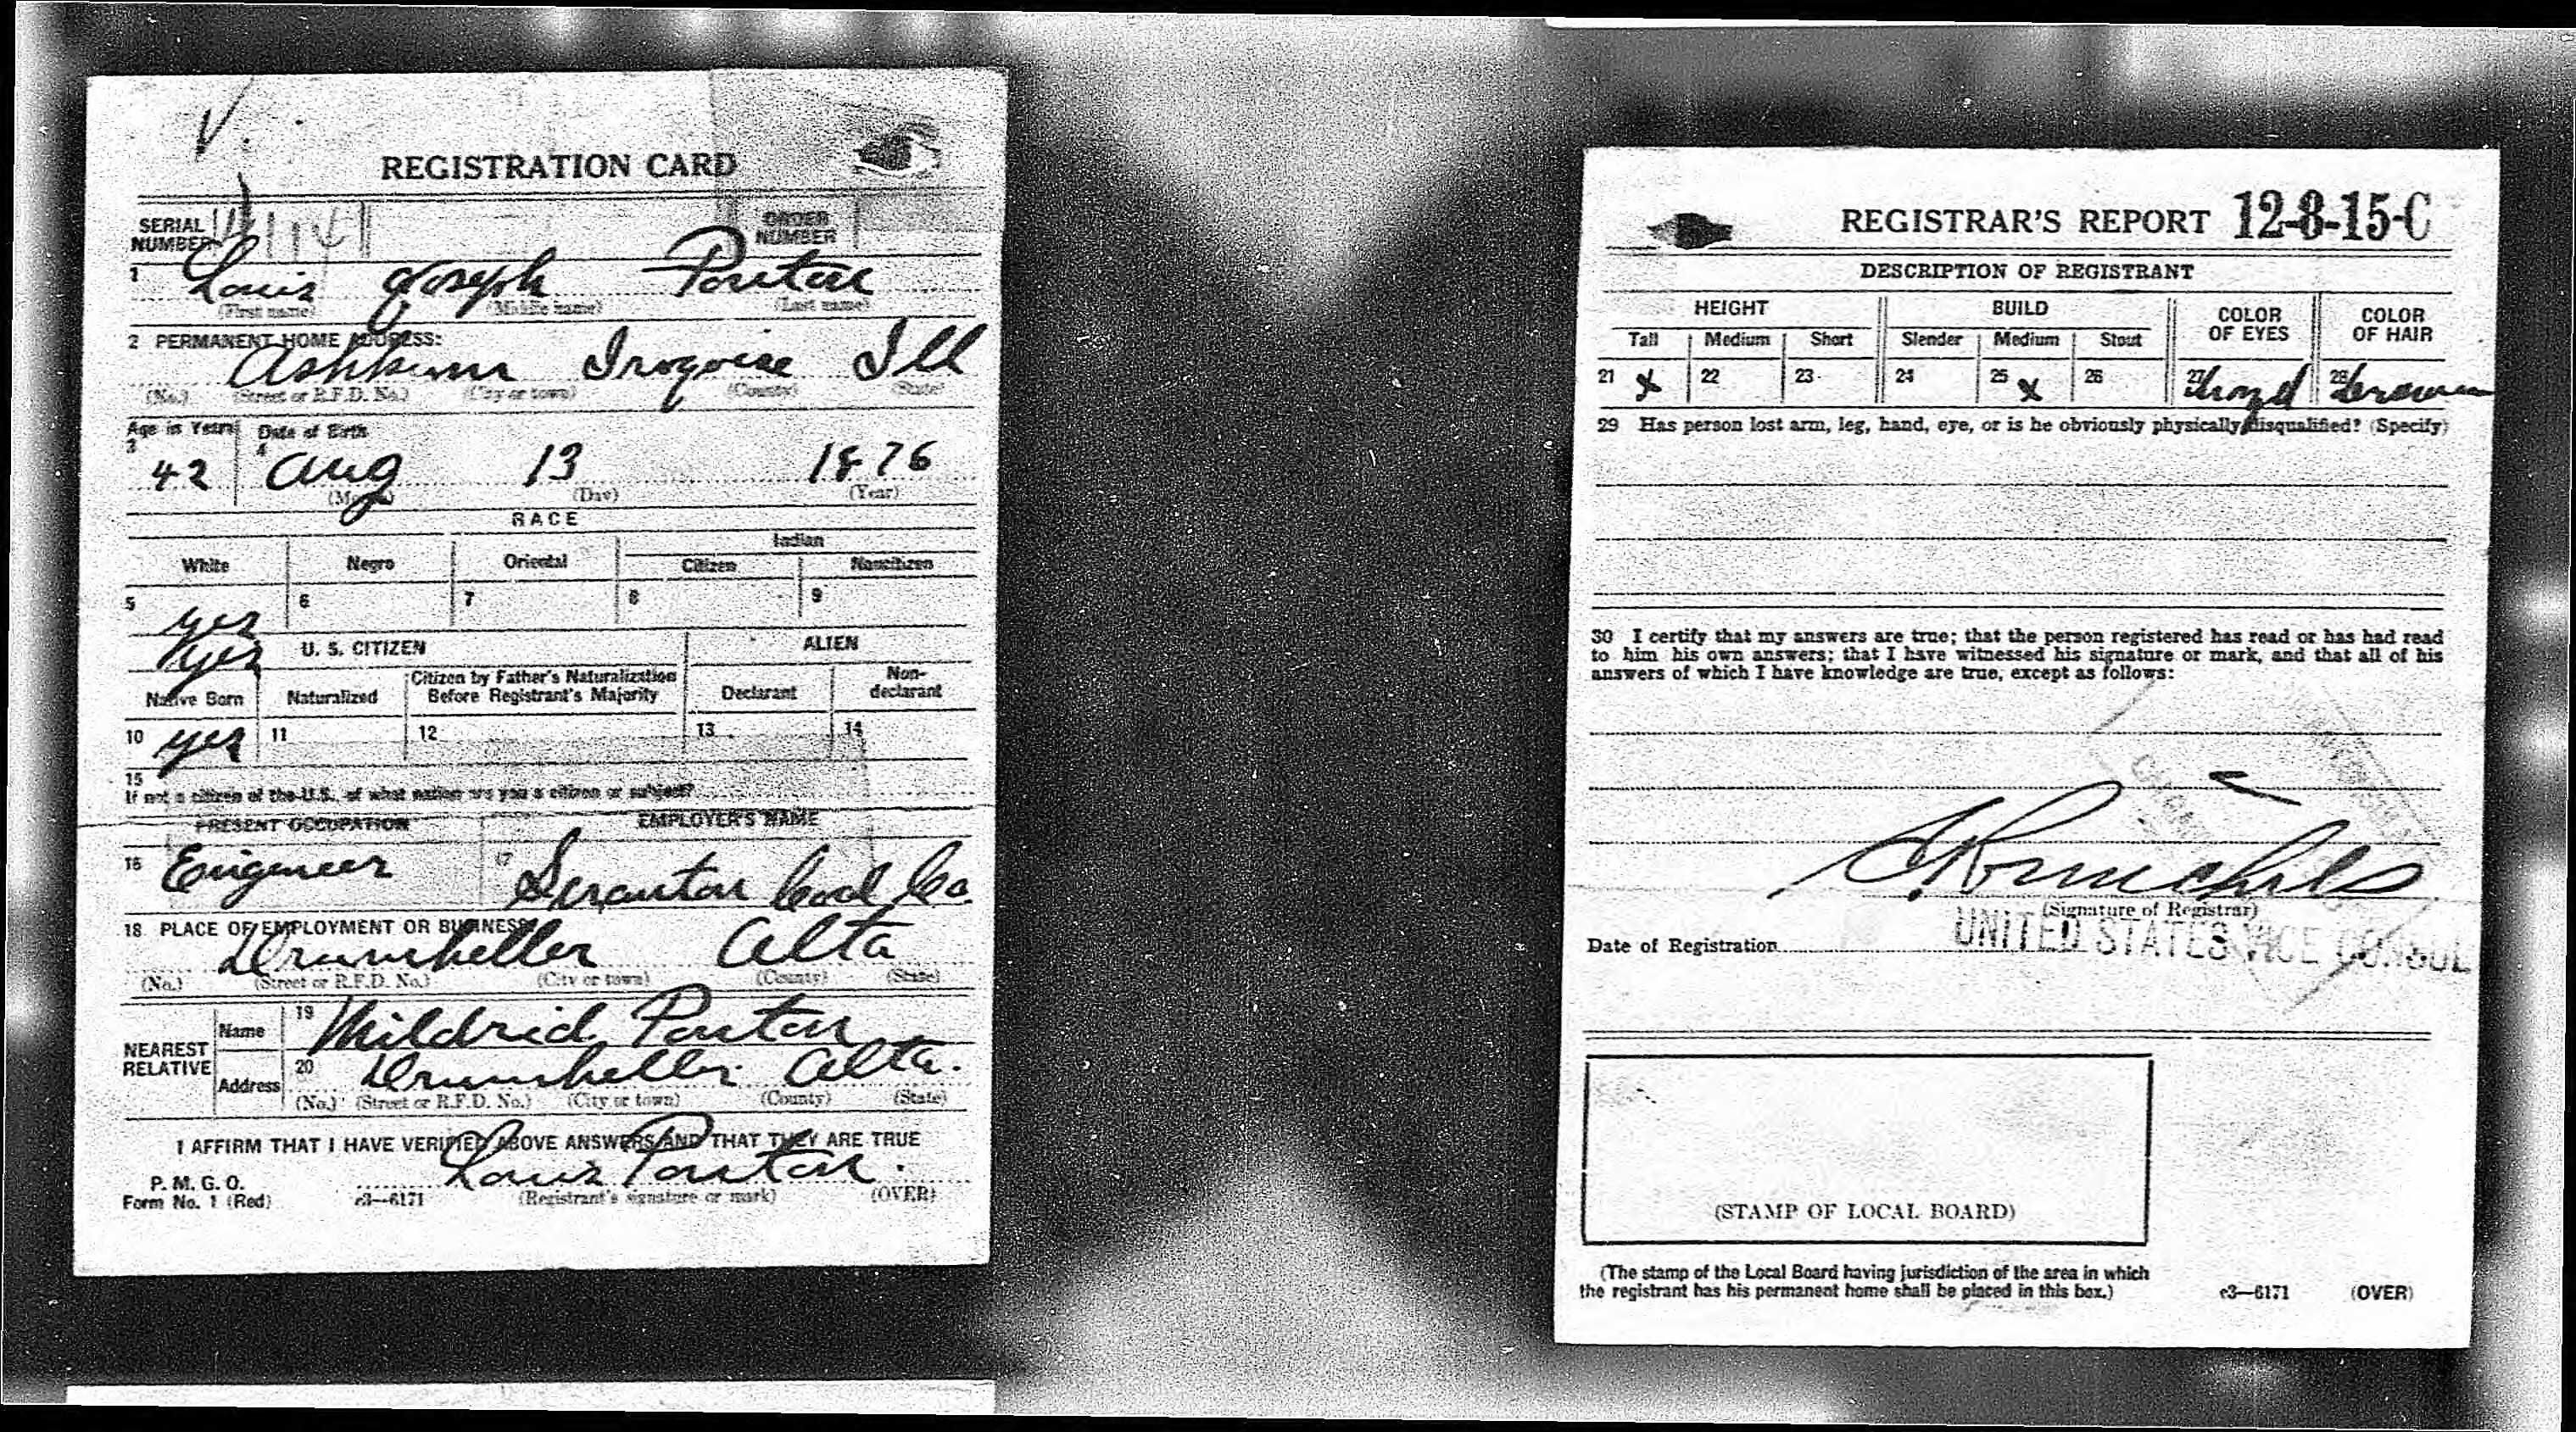 REGISTRATION CARD
SERIAL NUMBER
ORDER NUMBER
1 Louis Joseph
(First name) (Middle name) (Last name)
2 PERMANENT HOME ADDRESS:
Ashkum Iroquise Ill
(No.) (Street or R.F.D. No.) (City or town) (County) (State)
Age in Years Date of Birth
3 42 4 Aug 13 1876
(Month) (Day) (Year)
RACE
White Negro Oriental Indian
Citizen Noncitizen
5 yes 6 7 8 9
yes U. S. CITIZEN ALIEN
Native Born Naturalized Citizen by Father's Naturalization Before Registrant's Majority Declarant Non-declarant
10 yes 11 12 13 14
15
If not a citizen of the U.S., of what nation are you a citizen or subject?
PRESENT OCCUPATION EMPLOYER'S NAME
16 Engineer 17 Scranton Coal Co.
18 PLACE OF EMPLOYMENT OR BUSINESS:
Drumheller Alta
(No.) (Street or R.F.D. No.) (City or town) (County) (State)
NEAREST RELATIVE
Name 19 Mildrid
Address 20 Drumheller Alta.
(No.) (Street or R.F.D. No.) (City or town) (County) (State)
I AFFIRM THAT I HAVE VERIFIED ABOVE ANSWERS AND THAT THEY ARE TRUE
P. M. G. O.
Form No. 1 (Red) c3—6171 Louis
(Registrant's signature or mark) (OVER)
REGISTRAR'S REPORT 12-8-15-C
DESCRIPTION OF REGISTRANT
HEIGHT BUILD COLOR OF EYES COLOR OF HAIR
Tall Medium Short Slender Medium Stout
21 x 22 23 24 25 x 26 27 28 brown
29 Has person lost arm, leg, hand, eye, or is he obviously physically disqualified? (Specify)
30 I certify that my answers are true; that the person registered has read or has had read
to him his own answers; that I have witnessed his signature or mark, and that all of his
answers of which I have knowledge are true, except as follows:
(Signature of Registrar)
UNITED STATES VICE CONSUL
Date of Registration
(STAMP OF LOCAL BOARD)
(The stamp of the Local Board having jurisdiction of the area in which
the registrant has his permanent home shall be placed in this box.) c3—6171 (OVER)